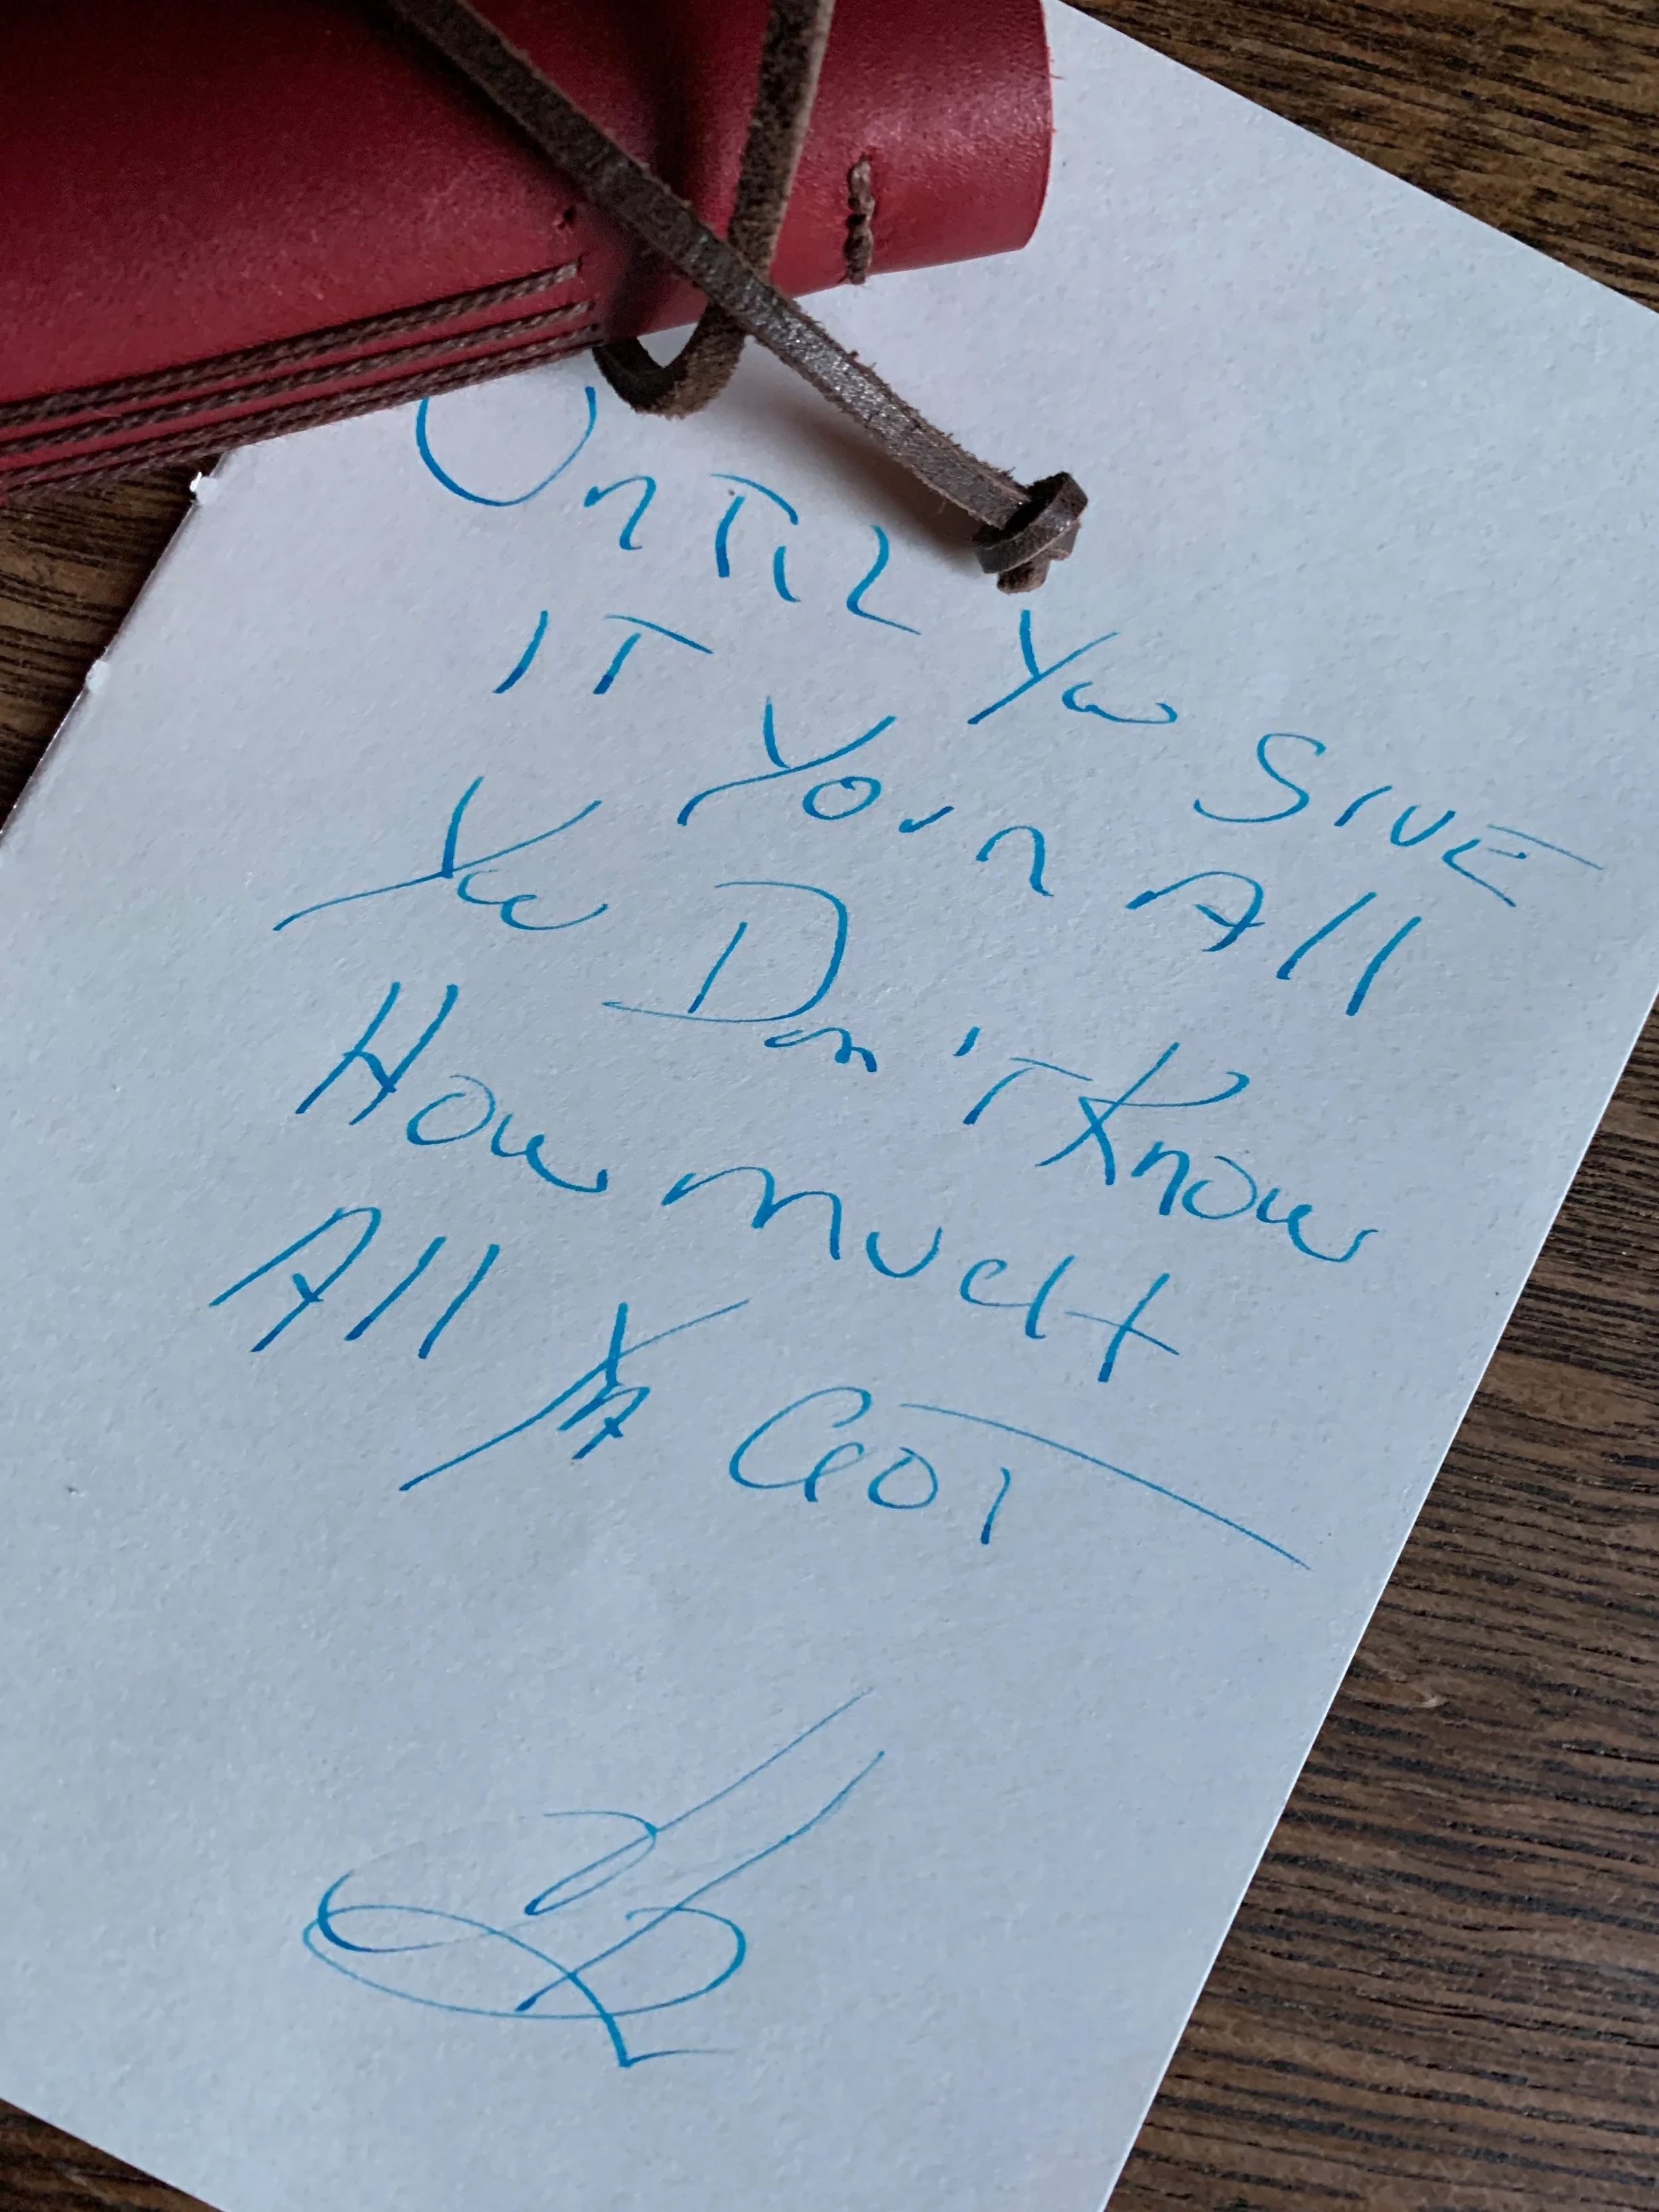 Until You Give
It Your All
You Don't Know
How much
All Ya Got